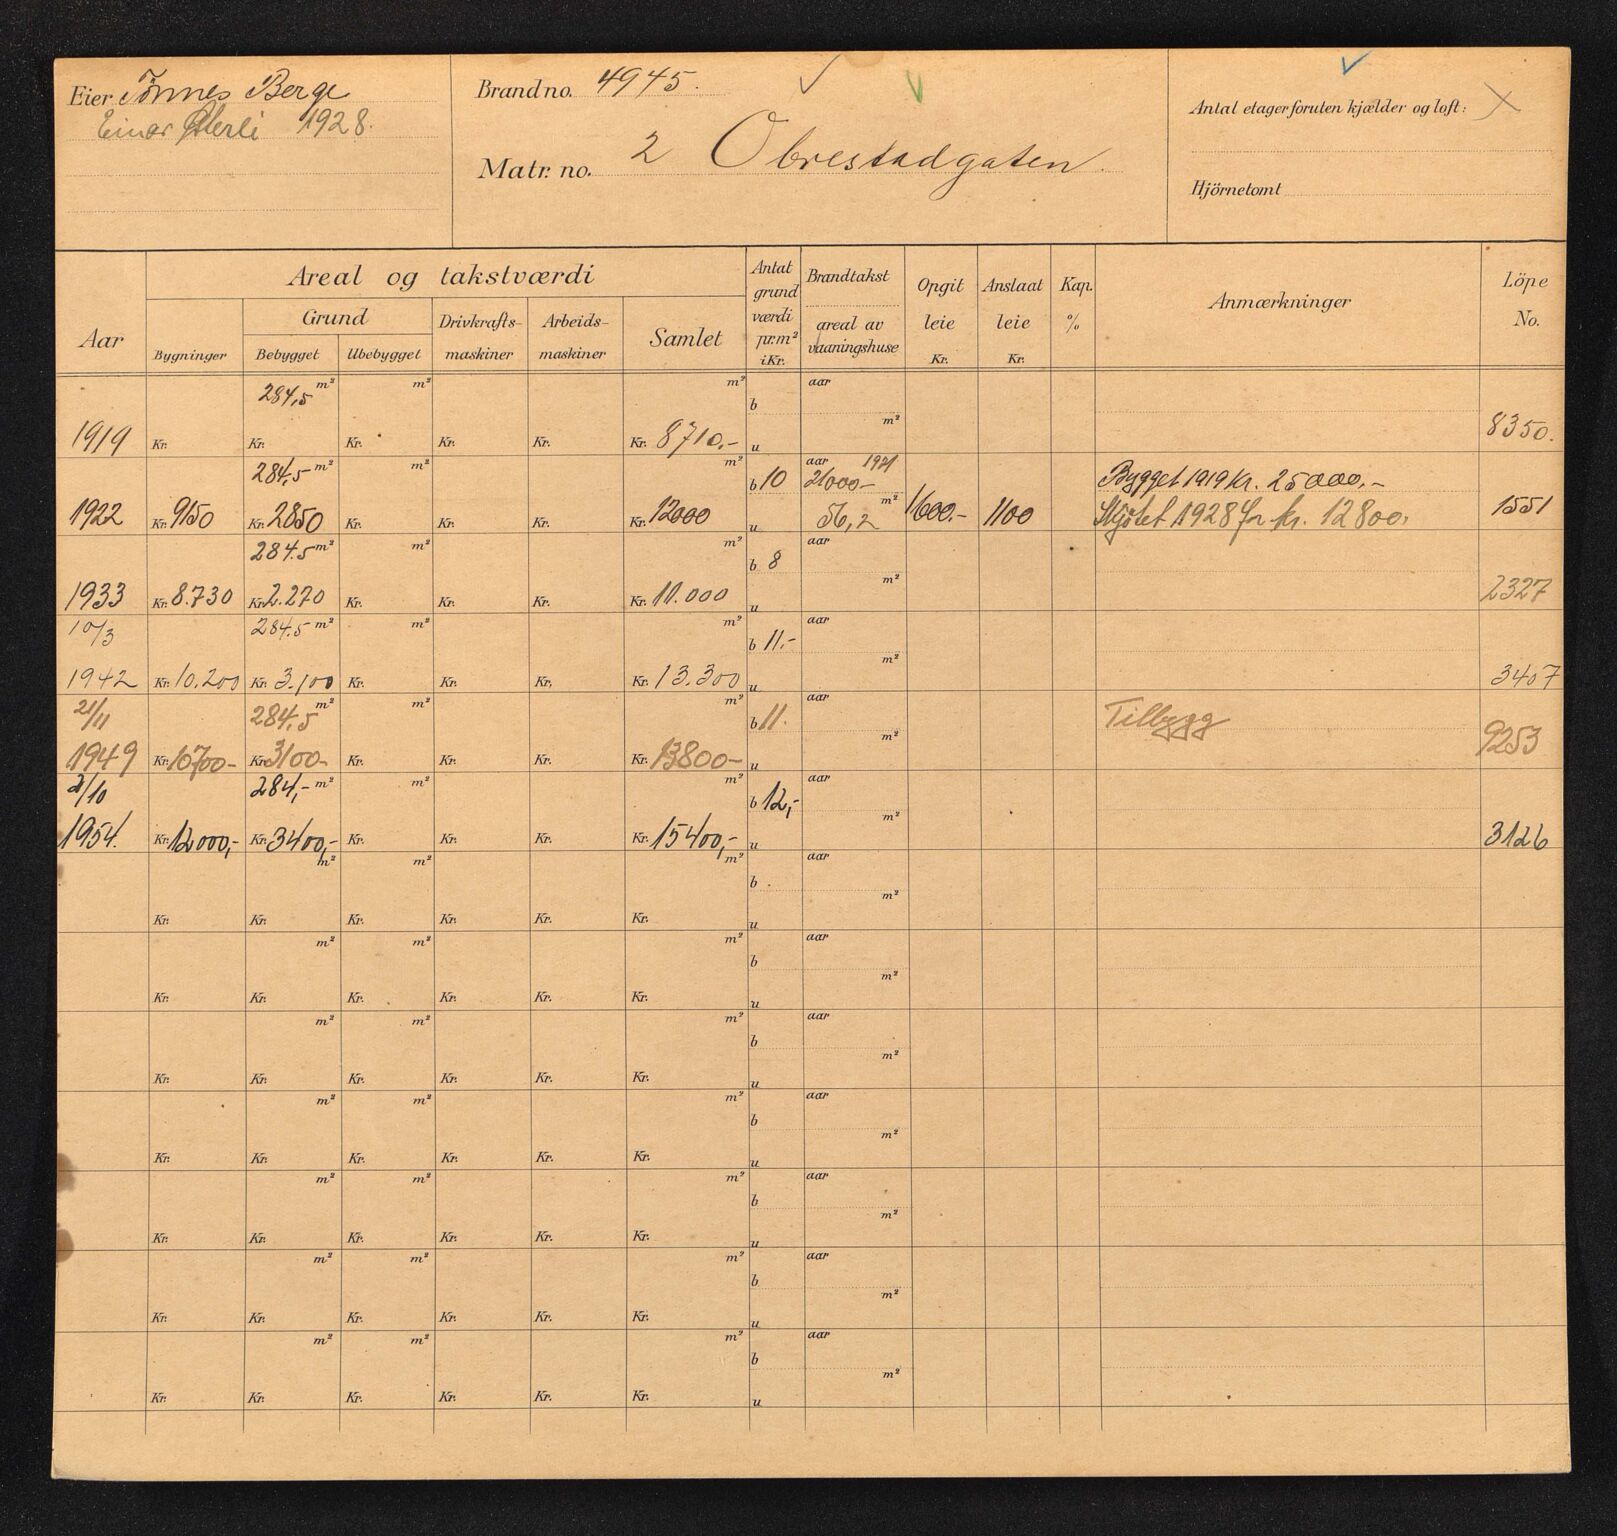 Eier Tönnes Berge
Einar 1928.
Brand no. 4945.
Matr. no. 2 Obrestadgaten.
Antal etager foruten kjælder og loft: X
Hjörnetomt
Aar
Areal og takstværdi
Bygninger
Grund
Bebygget Ubebygget
Drivkrafts-
maskiner
Arbeids-
maskiner
Samlet
Antat
grund
værdi
pr. m²
i Kr.
Brandtakst
areal av
vaaningshuse
Opgit
leie
Kr.
Anslaat
leie
Kr.
Kap.
%
Anmærkninger
Löpe
No.
284,5 m² m² m² aar
b
m²
1919 Kr. Kr. Kr. Kr. Kr. Kr. 8710,- u 8350.
284,5 m² m² m² aar 1921
b 10 21000- Bygget 1919 kr. 25000,-
m²
1922 Kr. 9150 Kr. 2850 Kr. Kr. Kr. Kr. 12000 u 56,2 1600.- 1100 Skjötet 1928 for kr. 12800. 1551
284.5 m² m² m² aar
b 8
m²
1933 Kr. 8.730 Kr. 2.270 Kr. Kr. Kr. Kr. 11.000 u 2327
10/3 284.5 m² m² m² aar
b 11.-
m²
1942 Kr. 10.200 Kr. 3.100 Kr. Kr. Kr. Kr. 13.300 u 3407
21/11 284,5 m² m² m² aar
b 11. Tilbygg
m²
1949 Kr. 10700- Kr. 3100- Kr. Kr. Kr. Kr. 13800- u 9253
2/10 284,- m² m² m² aar
b 12,-
m²
1954. Kr. 12000,- Kr. 3400,- Kr. Kr. Kr. Kr. 15400,- u 3126
m² m² m² aar
b
m²
Kr. Kr. Kr. Kr. Kr. Kr. u
m² m² m² aar
b
m²
Kr. Kr. Kr. Kr. Kr. Kr. u
m² m² m² aar
b
m²
Kr. Kr. Kr. Kr. Kr. Kr. u
m² m² m² aar
b
m²
Kr. Kr. Kr. Kr. Kr. Kr. u
m² m² m² aar
b
m²
Kr. Kr. Kr. Kr. Kr. Kr. u
m² m² m² aar
b
m²
Kr. Kr. Kr. Kr. Kr. Kr. u
m² m² m² aar
b
m²
Kr. Kr. Kr. Kr. Kr. Kr. u